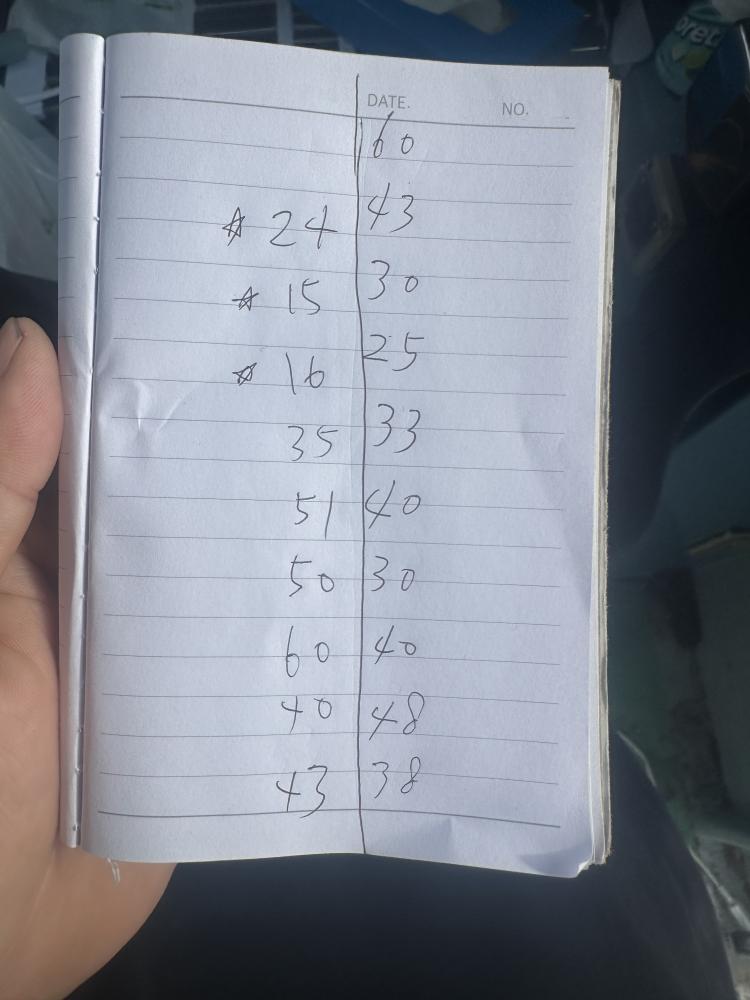 DATE. NO.
60
☆ 24 43
☆ 15 30
☆ 16 25
35 33
51 40
50 30
60 40
40 48
43 38